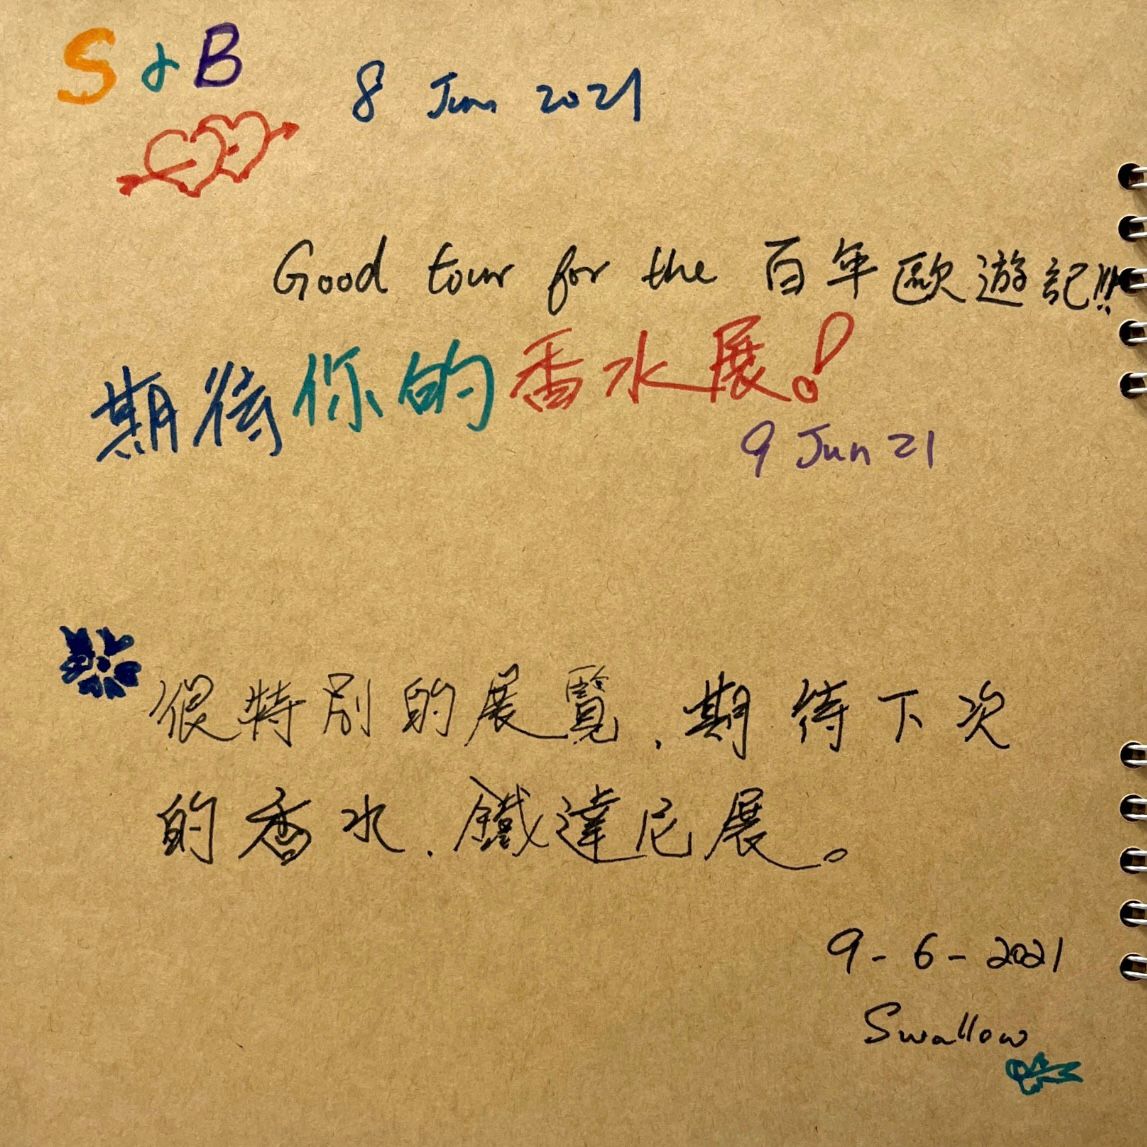 S & B
8 Jun 2021
Good tour for the 百年歐遊記!!!
期待你的香水展!
9 Jun 21
很特別的展覽、期待下次
的香水、鐵達尼展。
9-6-2021
Swallow